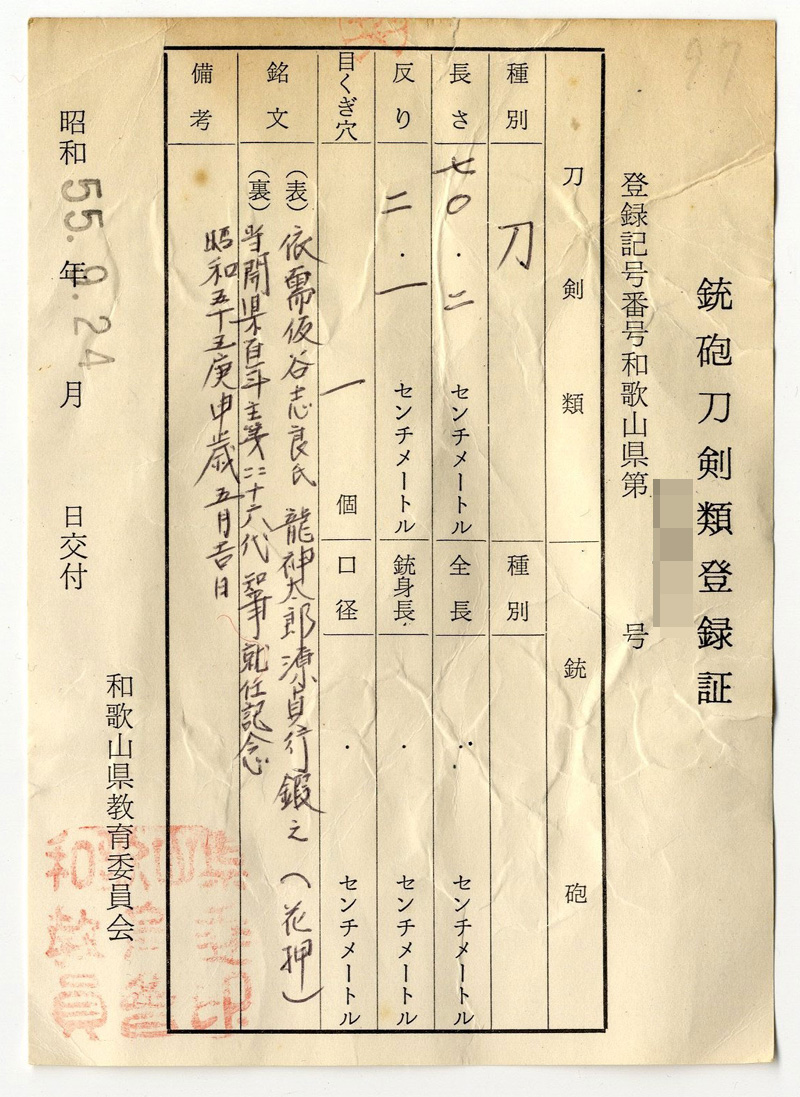 銃砲刀剣類登録証
登録記号番号和歌山県第 号
刀剣類 銃砲
種別 刀 種別
長さ 七〇・二 センチメートル 全長 ・ センチメートル
反り 二・一 センチメートル 銃身長 ・ センチメートル
目くぎ穴 一 個 口径 ・ センチメートル
銘文 (表) 依需仮谷志良氏 龍神太郎源貞行鍛之 (花押)
(裏) 当開県百年主 二十六代 知事就任記念
昭和五十五庚申歳五月吉日
備考
昭和55年9.24月 日交付
和歌山県教育委員会